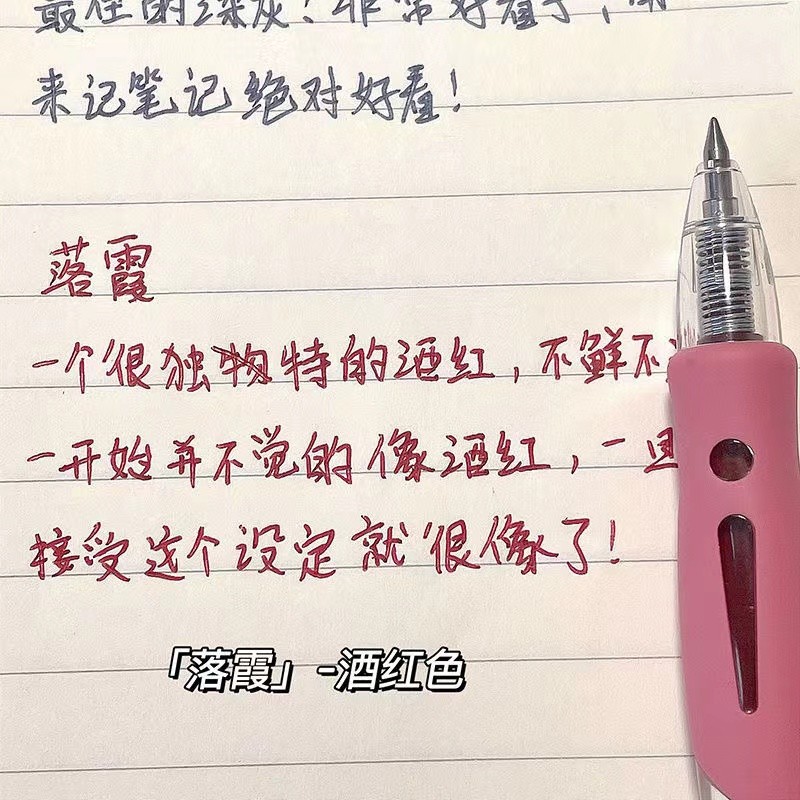 最佳的深灰！非常好看了，用
来记笔记绝对好看！
落霞
一个很独特的酒红，不鲜不
一开始并不觉的像酒红，一旦
接受这个设定就很像了！
「落霞」-酒红色